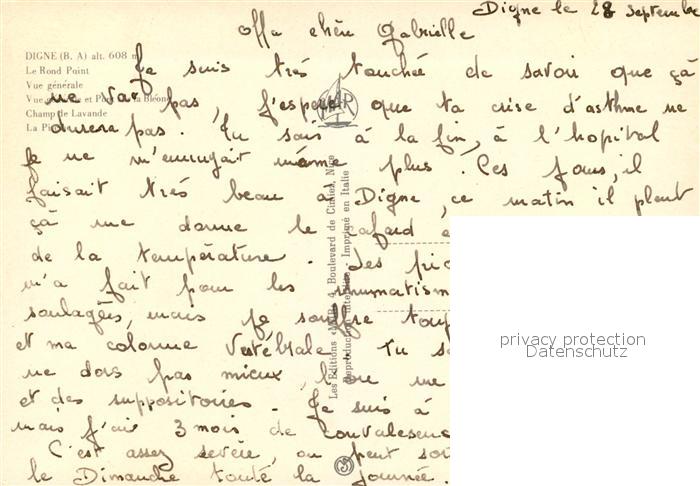 Digne le 28 Septembre
Ma chère Gabrielle
Je suis très touchée de savoir que çà
ne va pas, j'espère que ta crise d'asthme ne
durera pas. Tu sais à la fin, à l'hopital
je ne m'ennuyait même plus. Ces jours, il
faisait très beau à Digne, ce matin il pleut
çà me donne le cafard
de la température. Les
m'a fait pour les rhumatism
soulagées, mais je souffre touj
et ma colonne Vertébrale. Tu
ne dors pas mieux, on me
et des suppositoires. Je suis à
mais j'ai 3 mois de convalescenc
C'est assez sevère, on peut sor
le Dimanche toute la journée.
DIGNE (B. A) alt. 608 m
Le Rond Point
Vue générale
Vue et Pont la Bléone
Champ de Lavande
La
Les Editions 4, Boulevard de Cimiez, Nice
Reproduction interdite - Imprimé en Italie
privacy protection
Datenschutz